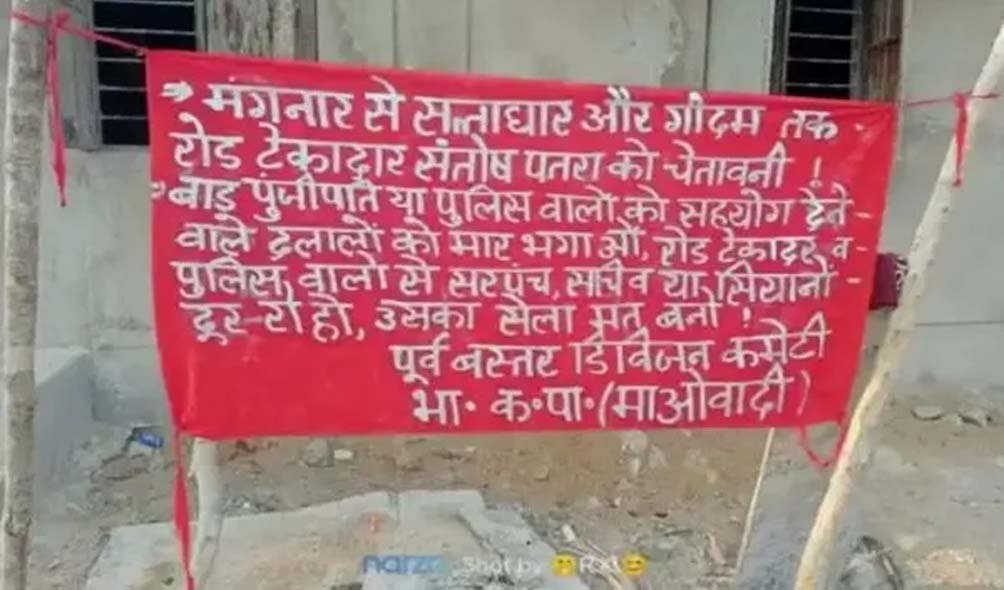 → मंगनार से सत्ताधार और गीदम तक
रोड टेकादार संतोष पतरा को चेतावनी !
बाड़ पुंजीपति या पुलिस वालो को सहयोग देने -
वाले दलालों को मार भगाओं, रोड टेकादर व -
पुलिस वालो से सरपंच, सचिव या सियानों -
दूर रो हो, उसका सैला मत बनो !
पूर्व बस्तर डिविजन कमेटी
भा॰ क॰पा॰(माओवादी)
narzo Shot by